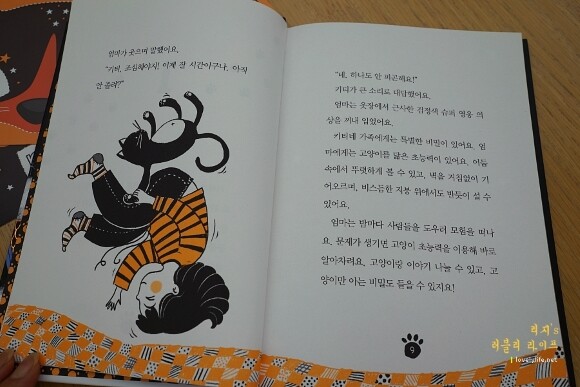 엄마가 웃으며 말했어요.
"키티, 조심해야지! 이제 잘 시간이구나. 아직
안 졸려?"
"네, 하나도 안 피곤해요!"
키티가 큰 소리로 대답했어요.
엄마는 옷장에서 근사한 검정색 슈퍼 영웅 의
상을 꺼내 입었어요.
키티네 가족에게는 특별한 비밀이 있어요. 엄
마에게는 고양이를 닮은 초능력이 있어요. 어둠
속에서 뚜렷하게 볼 수 있고, 벽을 거침없이 기
어오르며, 비스듬한 지붕 위에서도 반듯이 설 수
있어요.
엄마는 밤마다 사람들을 도우러 모험을 떠나
요. 문제가 생기면 고양이 초능력을 이용해 바로
알아차려요. 고양이랑 이야기 나눌 수 있고, 고
양이만 아는 비밀도 들을 수 있지요!
9
리지's
러블리 라이프